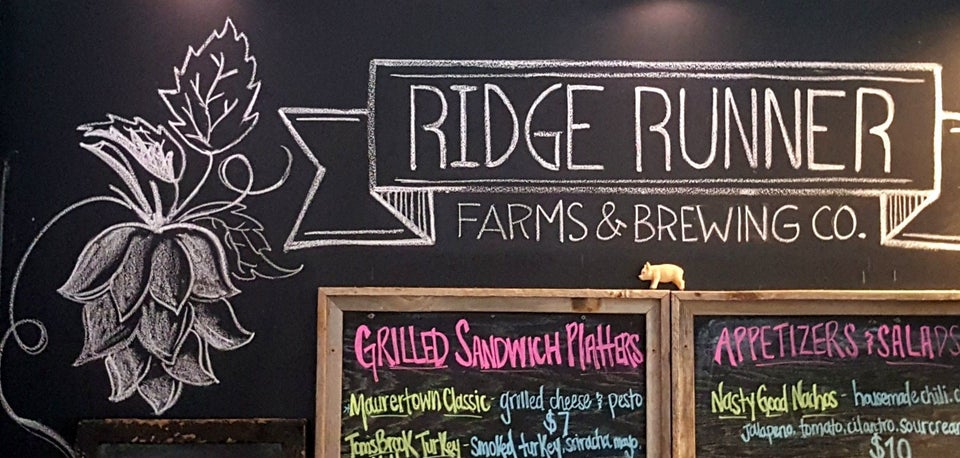 RIDGE RUNNER
FARMS & BREWING CO.
GRILLED SANDWICH PLATTERS
Maurertown Classic - grilled cheese & pesto
$7
Toms Brook Turkey - smoked turkey, sriracha mayo,
APPETIZERS & SALADS
Nasty Good Nachos - housemade chili, c
jalapeno, tomato, cilantro, sour cream
$10